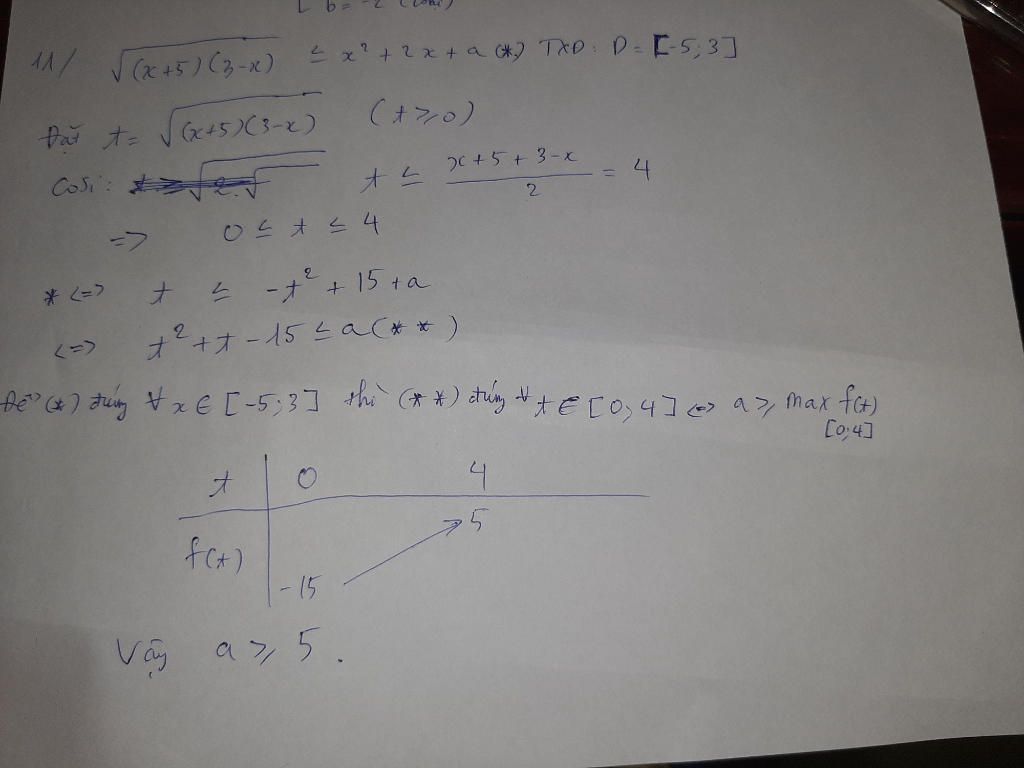 [ b = -2 (loại)
11/ √(x+5)(3-x) ≤ x² + 2x + a (*) TXD: D = [-5;3]
Đặt t = √(x+5)(3-x) (t ≥ 0)
Cosi: t ≤ (x+5+3-x)/2 = 4
=> 0 ≤ t ≤ 4
* <=> t ≤ -t² + 15 + a
<=> t² + t - 15 ≤ a (**)
Để (*) đúng ∀ x ∈ [-5;3] thì (**) đúng ∀ t ∈ [0;4] <=> a ≥ max f(t)
[0;4]
t 0 4
5
f(t)
-15
Vậy a ≥ 5.